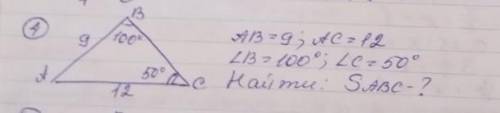 4
B
9
100°
AB=9; AC=12
∠B=100°; ∠C=50°
A
50°
C
12
Найти: SABC-?